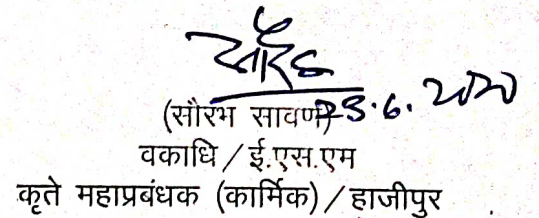 सौरभ
(सौरभ सावर्ण) 23.6.2020
वकाधि / ई.एस.एम
कृते महाप्रबंधक (कार्मिक) / हाजीपुर